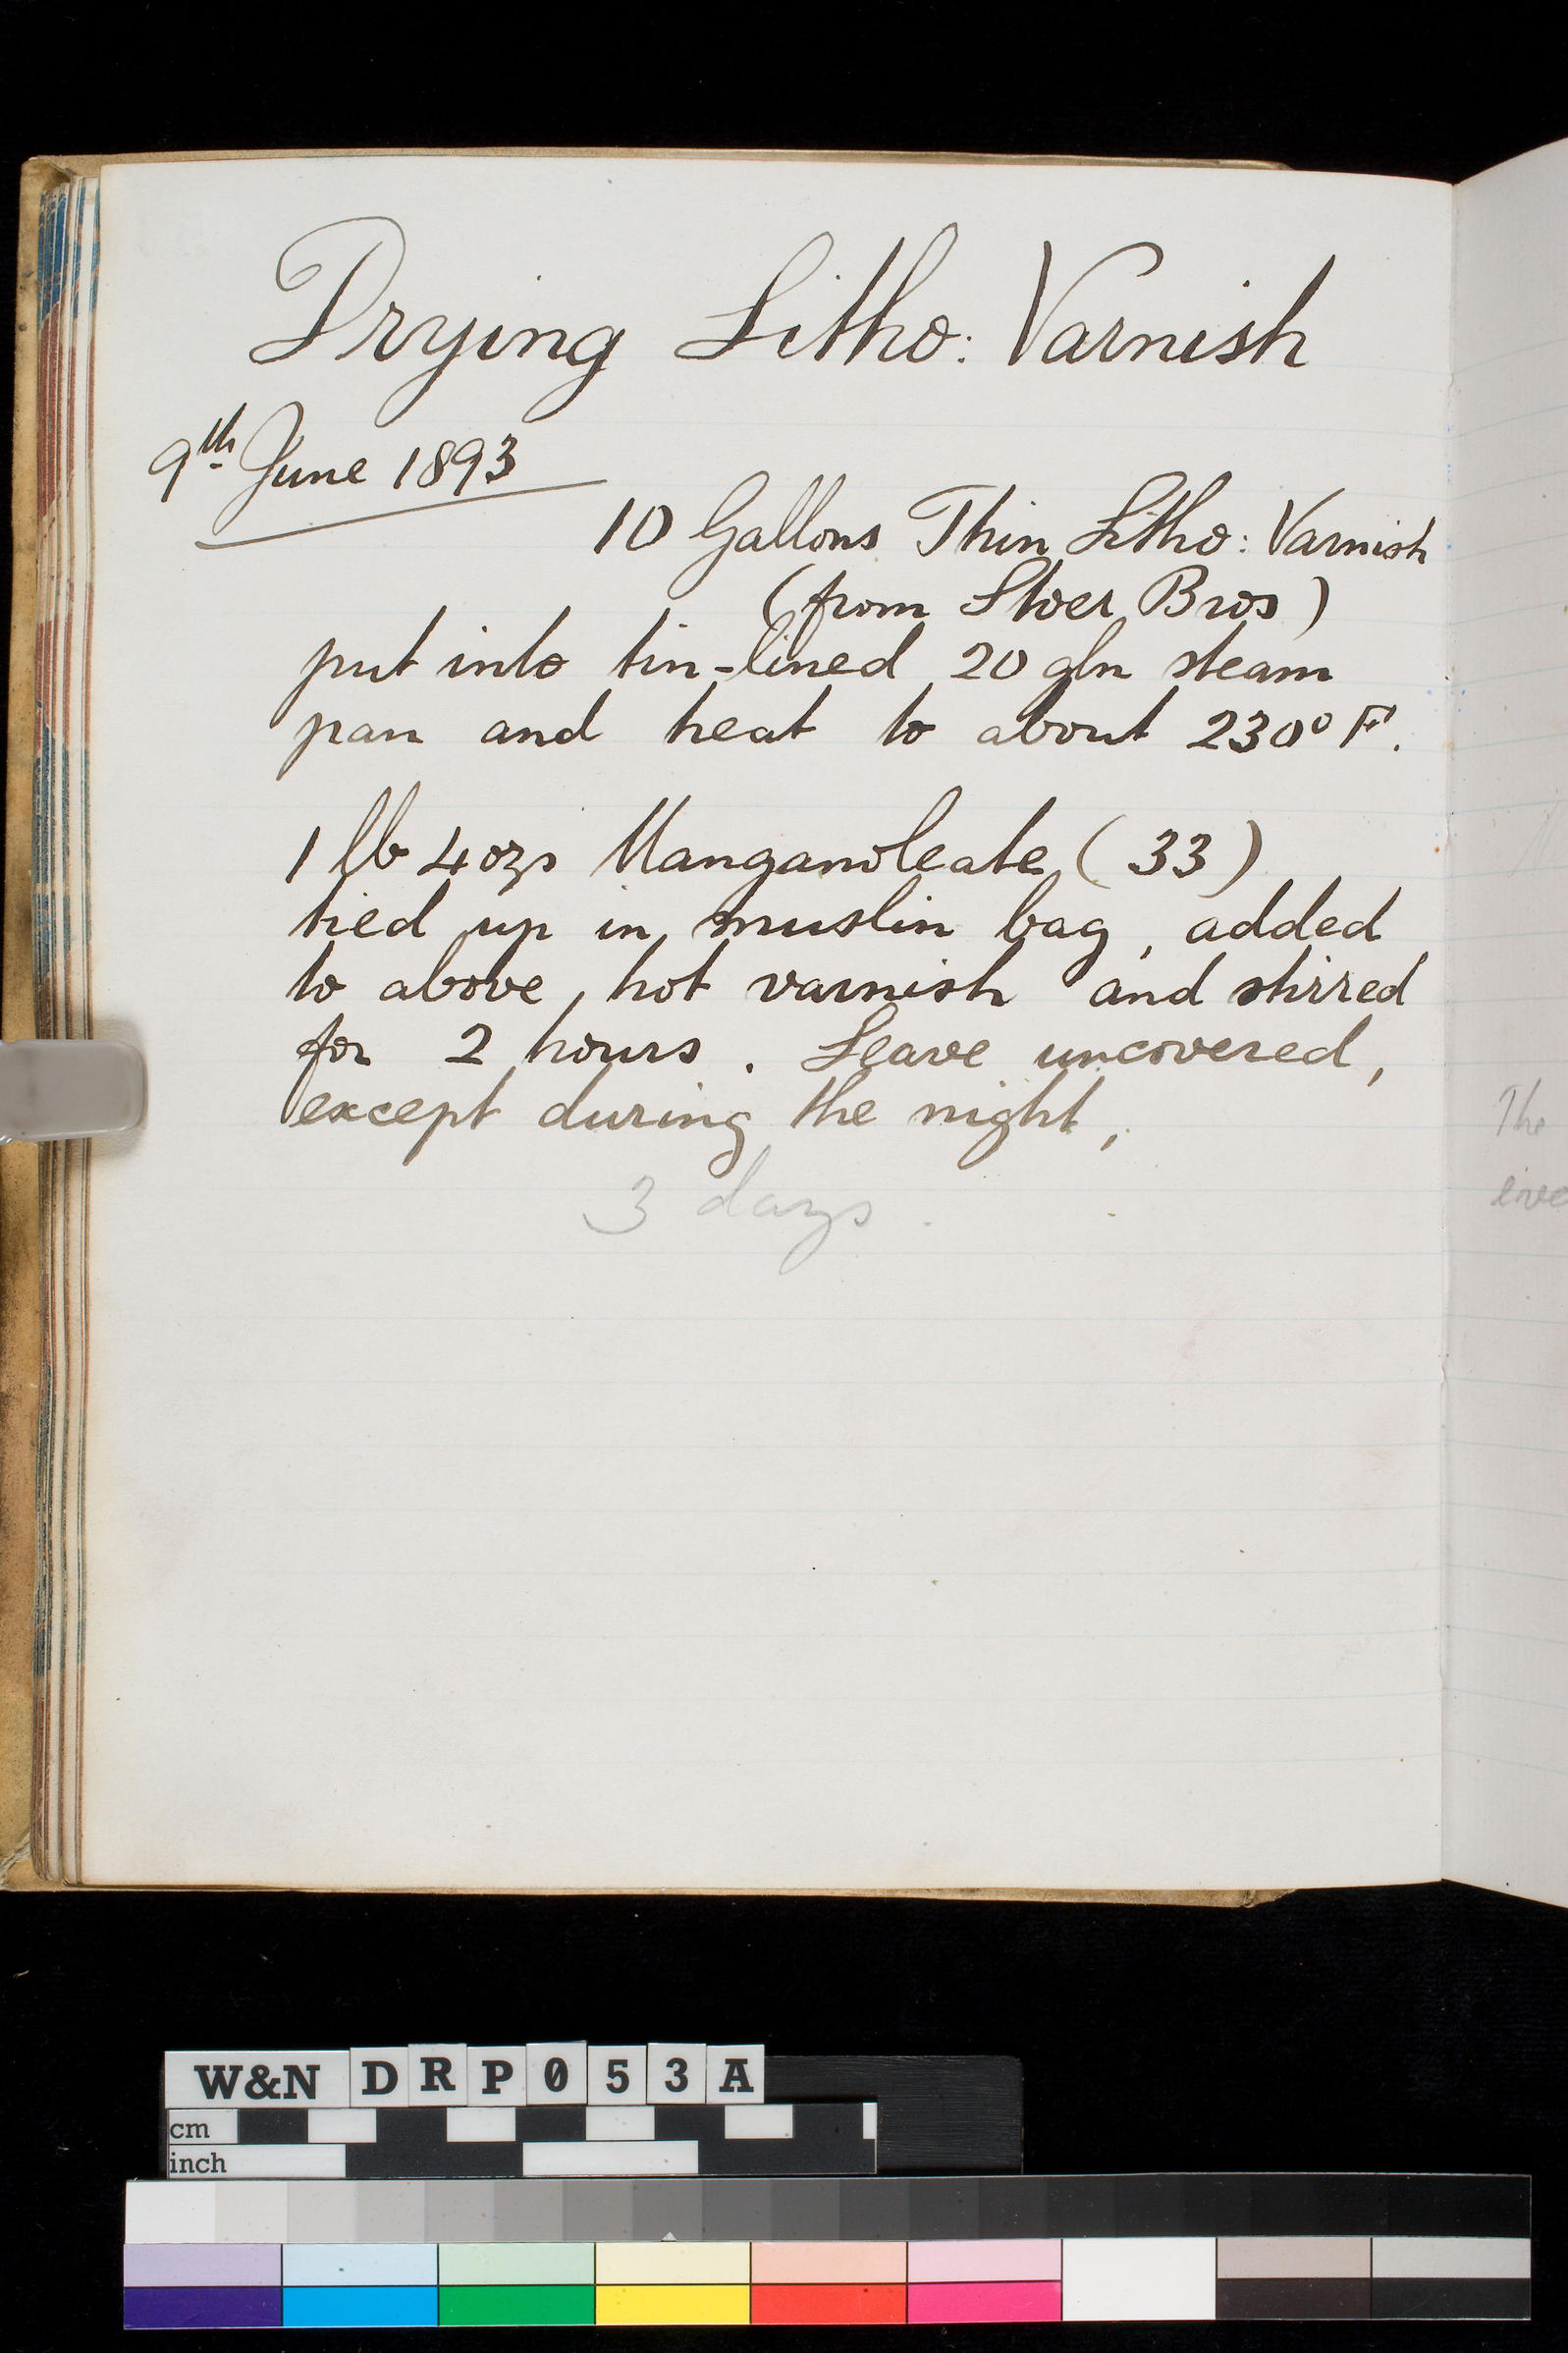 Drying Litho: Varnish
9th June 1893
10 Gallons Thin Litho: Varnish
(from Stoer Bros)
put into tin-lined 20 gln steam
pan and heat to about 230° F.
1 lb 4 ozs Manganoleate (33)
tied up in muslin bag, added
to above, hot varnish and stirred
for 2 hours. Leave uncovered,
except during the night,
3 days.
The
W&N DRP053A
cm
inch